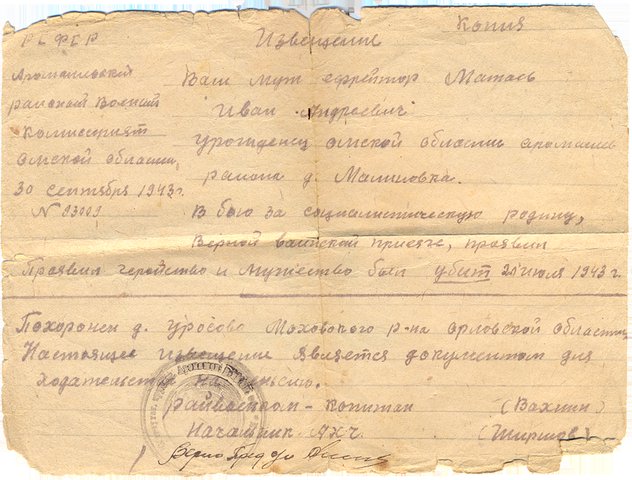 Копия
РСФСР Извещение
Аромашевский
районный Военный
Комиссариат
Омской области
30 сентября 1943г.
N 93009
Ваш муж ефрейтор
Иван Андреевич
уроженец Омской области
района д. Малиновка.
В бою за социалистическую родину,
Верной воинской присяге, проявил
Проявил геройство и мужество был убит 21 июля 1943 г.
Похоронен д. Моховского р-на Орловской области
Настоящее извещение является документом для
ходательства на пенсию.
Райвоенком - Капитан (Вахнин)
Начальник АХЧ
Верно